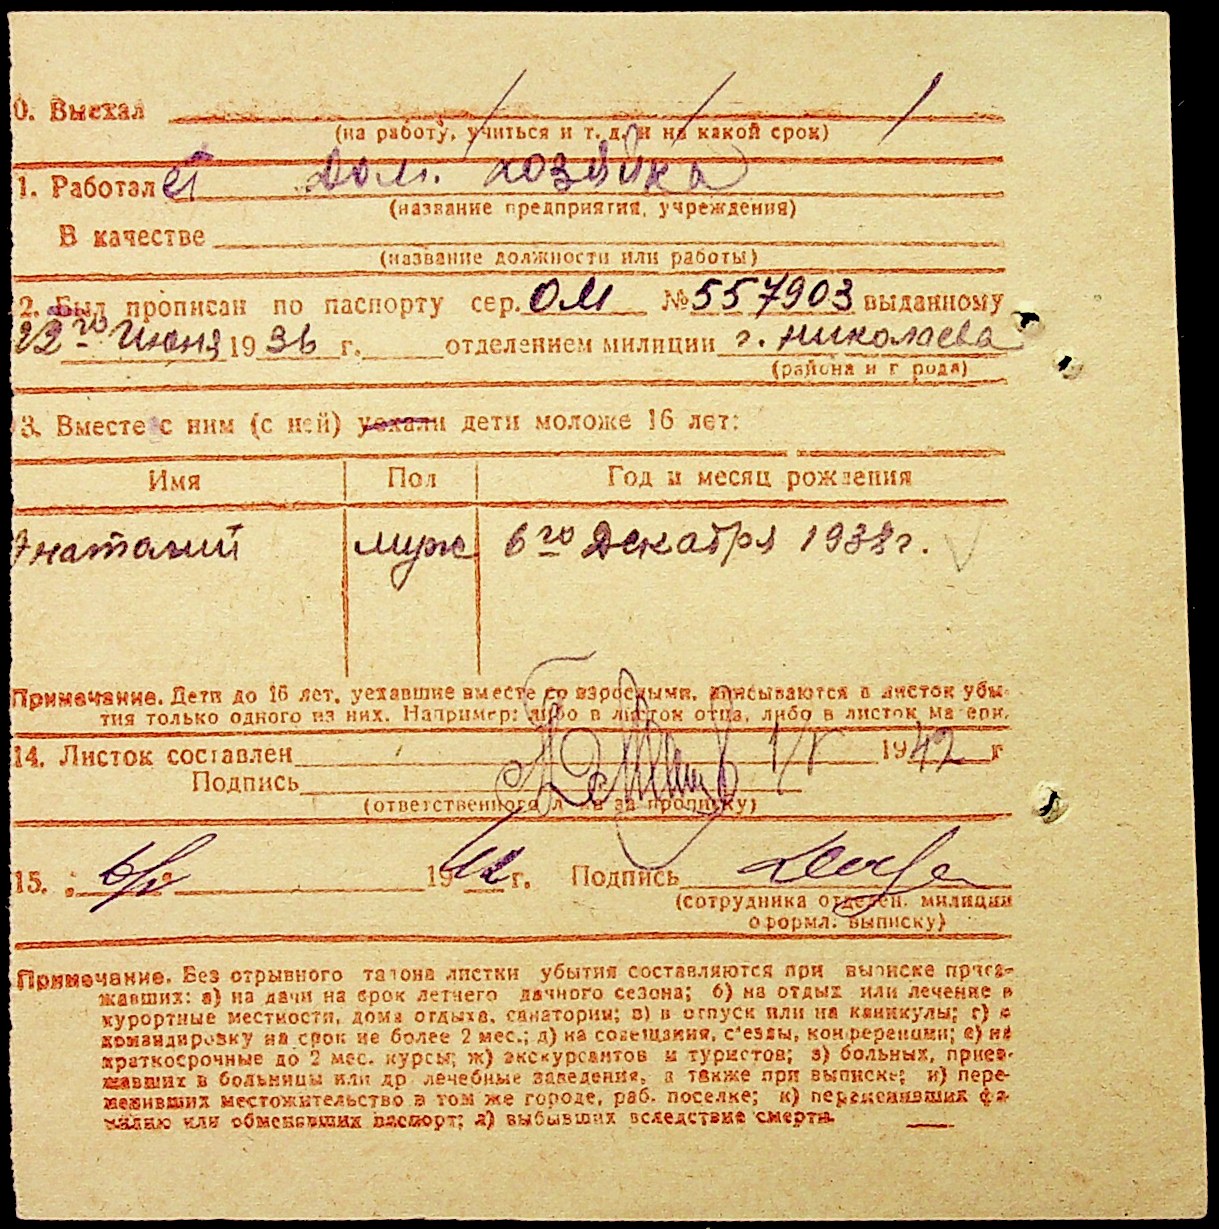 0. Выехал
(на работу, учиться и т. д. и на какой срок)
1. Работает дом. хозяйка
(название предприятия, учреждения)
В качестве
(название должности или работы)
2. Был прописан по паспорту сер. ОМ № 557903 выданному
22го Июня 1936 г. отделением милиции г. Николаева
(района и г рода)
3. Вместе с ним (с ней) уехали дети моложе 16 лет:
Имя Пол Год и месяц рождения
Анатолий муж 6го Декабря 1938г.
Примечание. Дети до 16 лет, уехавшие вместе со взрослыми, вписываются в листок убы-
тия только одного из них. Например: либо в листок отца, либо в листок ма ери.
14. Листок составлен 1942 г
Подпись
(ответственного л за прописку)
15. 1942 г. Подпись
(сотрудника отделен. милиции
оформл. выписку)
Примечание. Без отрывного талона листки убытия составляются при выписке приез-
жавших: а) на дачи на срок летнего дачного сезона; б) на отдых или лечение в
курортные местности, дома отдыха, санатории; в) в отпуск или на каникулы; г) в
командировку на срок не более 2 мес.; д) на совещания, с'езды, конференции; е) на
краткосрочные до 2 мес. курсы; ж) экскурсантов и туристов; з) больных, приез-
жавших в больницы или др лечебные заведения, а также при выписке; и) пере-
менивших местожительство в том же городе, раб. поселке; к) переменивших фа-
милию или обменявших паспорт; л) выбывших вследствие смерти.